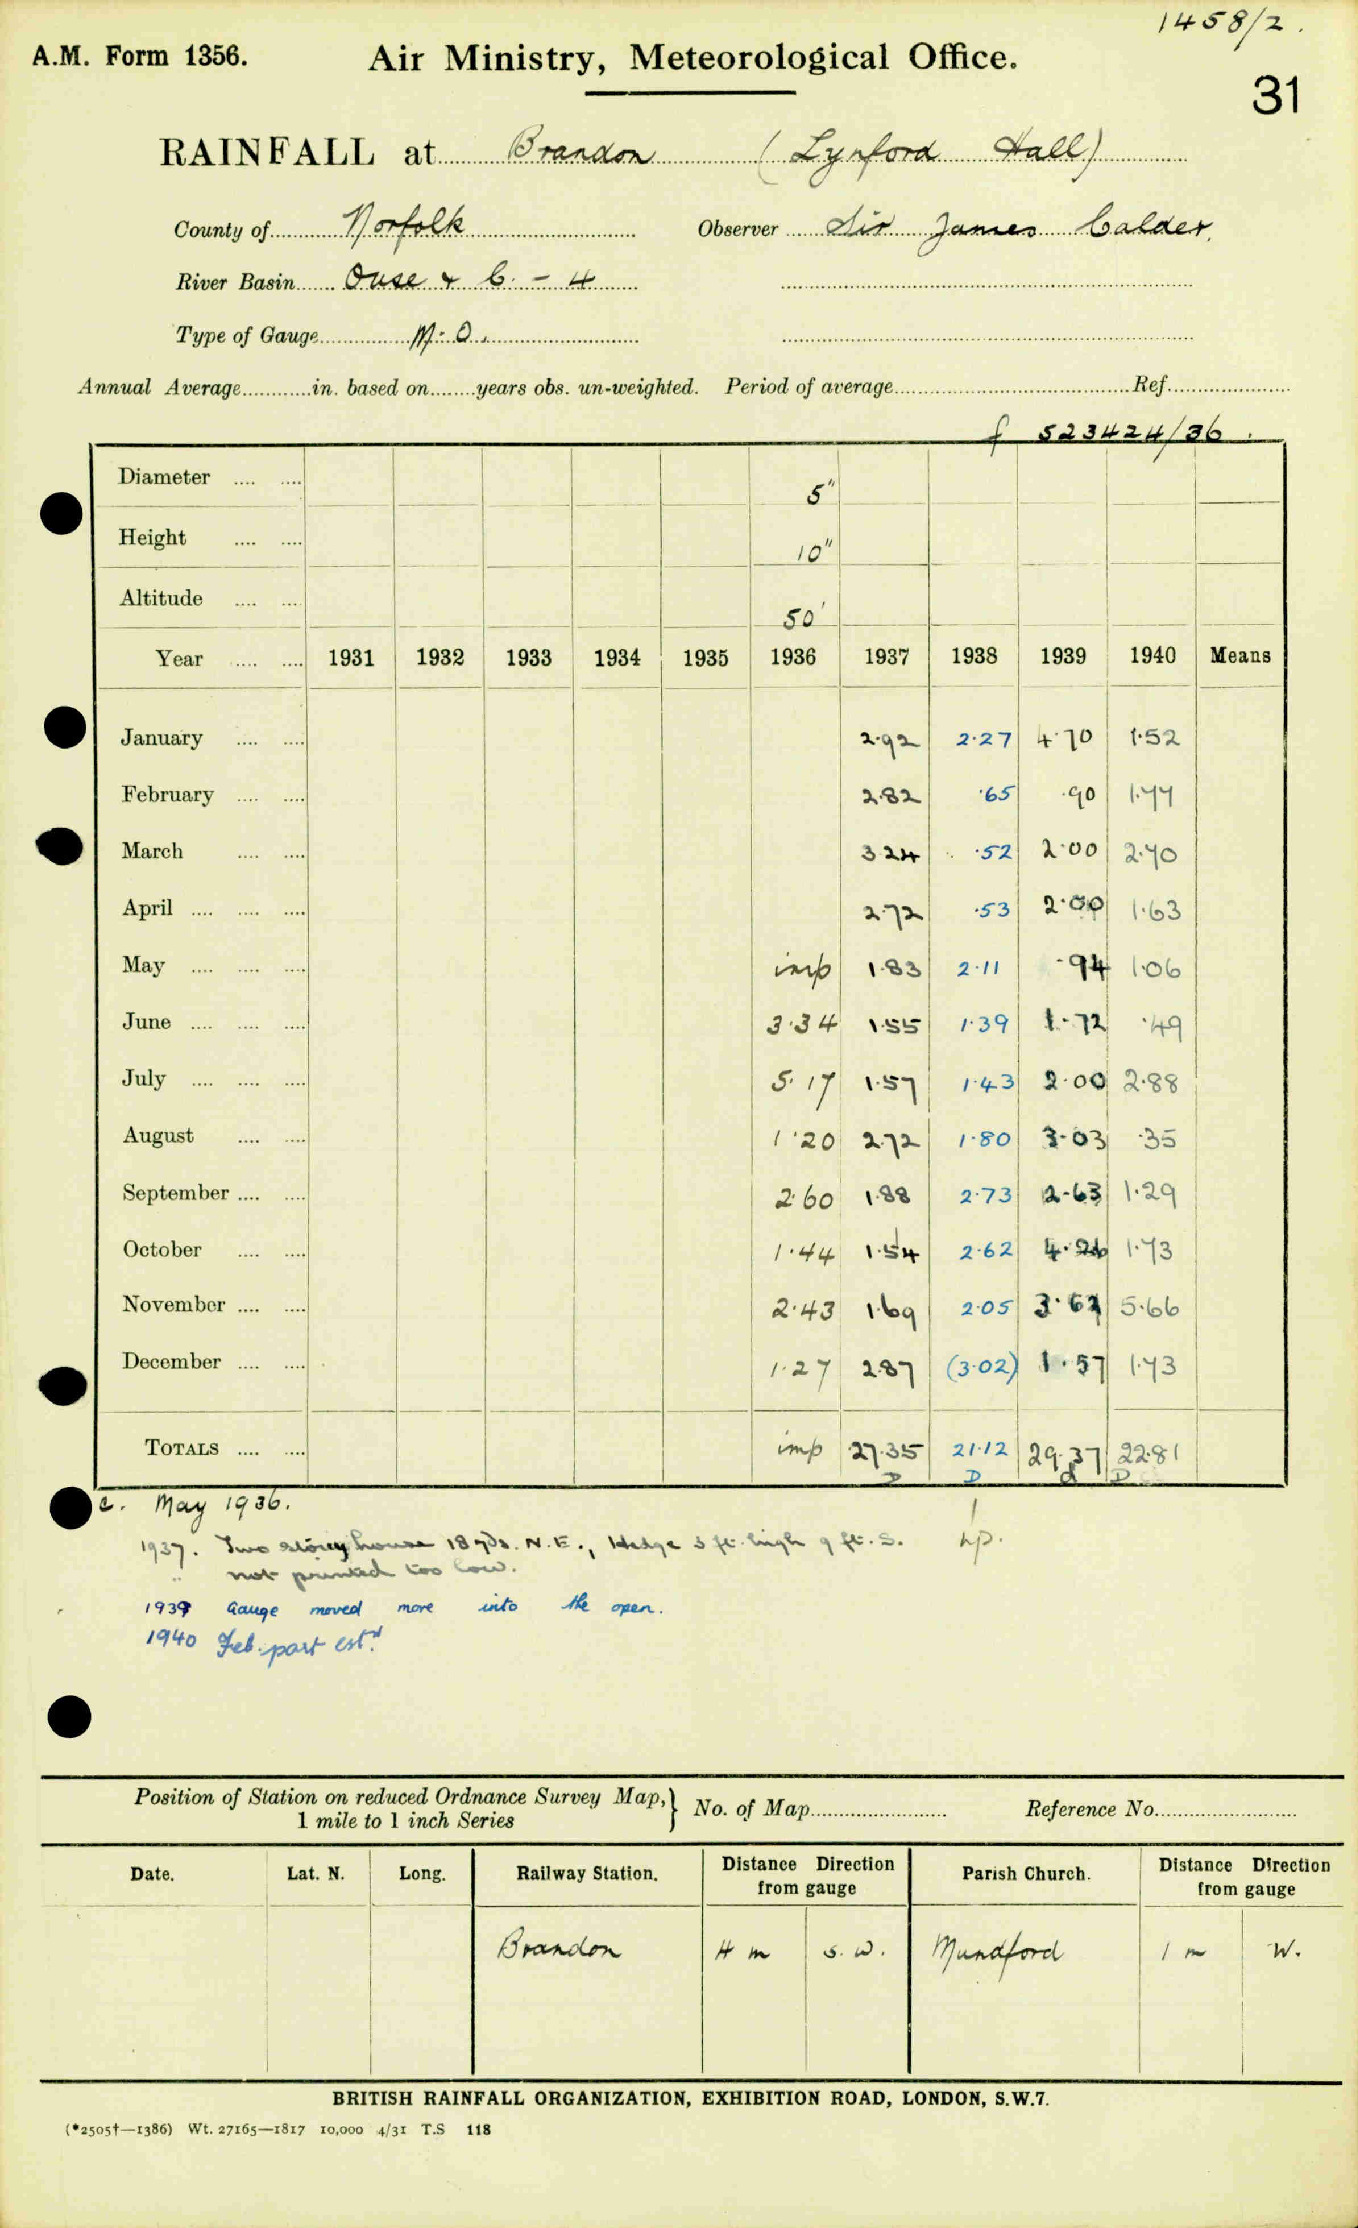 1458/2.
A.M. Form 1356. Air Ministry, Meteorological Office.
31
RAINFALL at Brandon (Lynford Hall)
County of Norfolk Observer Sir James Calder.
River Basin Ouse & C. - 4
Type of Gauge M.O.
Annual Average in. based on years obs. un-weighted. Period of average Ref.
f 523424/36.
Diameter 5"
Height 10"
Altitude 50'
Year 1931 1932 1933 1934 1935 1936 1937 1938 1939 1940 Means
January 2.92 2.27 4.70 1.52
February 2.82 .65 .90 1.77
March 3.24 .52 2.00 2.70
April 2.72 .53 2.00 1.63
May imp 1.83 2.11 .94 1.06
June 3.34 1.55 1.39 1.72 .49
July 5.17 1.57 1.43 2.00 2.88
August 1.20 2.72 1.80 3.03 .35
September 2.60 1.88 2.73 2.63 1.29
October 1.44 1.54 2.62 4.26 1.73
November 2.43 1.69 2.05 3.62 5.66
December 1.27 2.87 (3.02) 1.57 1.73
TOTALS imp 27.35 21.12 29.37 22.81
D D d D
c. May 1936.
1937. Two storey house 18 yds. N.E., Hedge 3 ft. high 9 ft. S.
" not printed too low.
1939 Gauge moved more into the open.
1940 Feb. part estd.
Position of Station on reduced Ordnance Survey Map, 1 mile to 1 inch Series No. of Map Reference No.
Date. Lat. N. Long. Railway Station. Distance Direction from gauge Parish Church. Distance Direction from gauge
Brandon 4 m S.W. Mundford 1 m W.
BRITISH RAINFALL ORGANIZATION, EXHIBITION ROAD, LONDON, S.W.7.
(*2505†—1386) Wt. 27165—1817 10,000 4/31 T.S 118